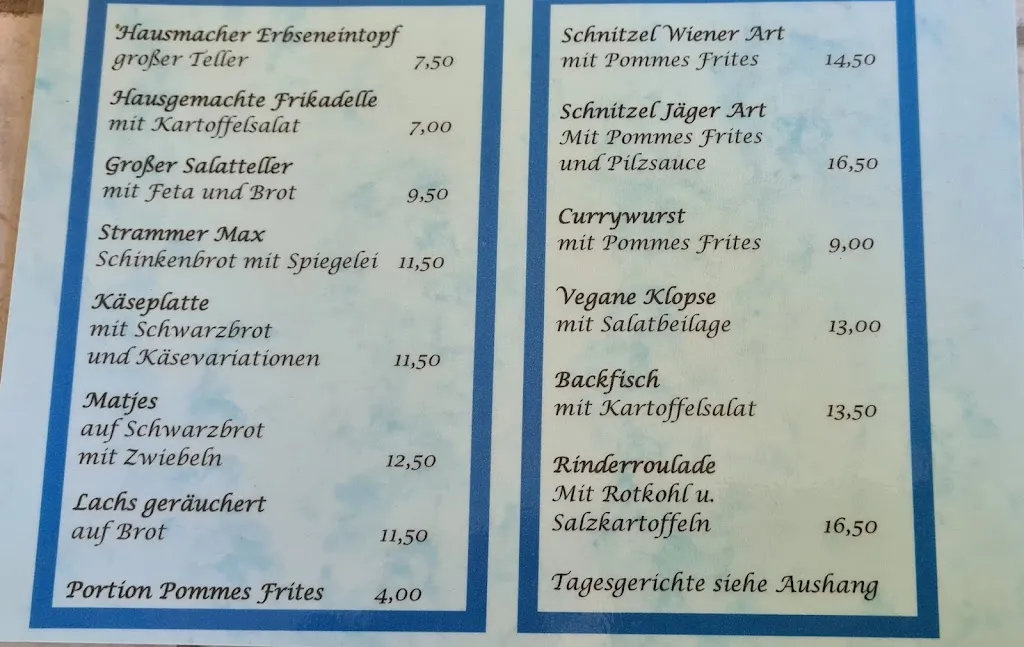 Hausmacher Erbseneintopf
großer Teller 7,50
Hausgemachte Frikadelle
mit Kartoffelsalat 7,00
Großer Salatteller
mit Feta und Brot 9,50
Strammer Max
Schinkenbrot mit Spiegelei 11,50
Käseplatte
mit Schwarzbrot
und Käsevariationen 11,50
Matjes
auf Schwarzbrot
mit Zwiebeln 12,50
Lachs geräuchert
auf Brot 11,50
Portion Pommes Frites 4,00
Schnitzel Wiener Art
mit Pommes Frites 14,50
Schnitzel Jäger Art
Mit Pommes Frites
und Pilzsauce 16,50
Currywurst
mit Pommes Frites 9,00
Vegane Klopse
mit Salatbeilage 13,00
Backfisch
mit Kartoffelsalat 13,50
Rinderroulade
Mit Rotkohl u.
Salzkartoffeln 16,50
Tagesgerichte siehe Aushang